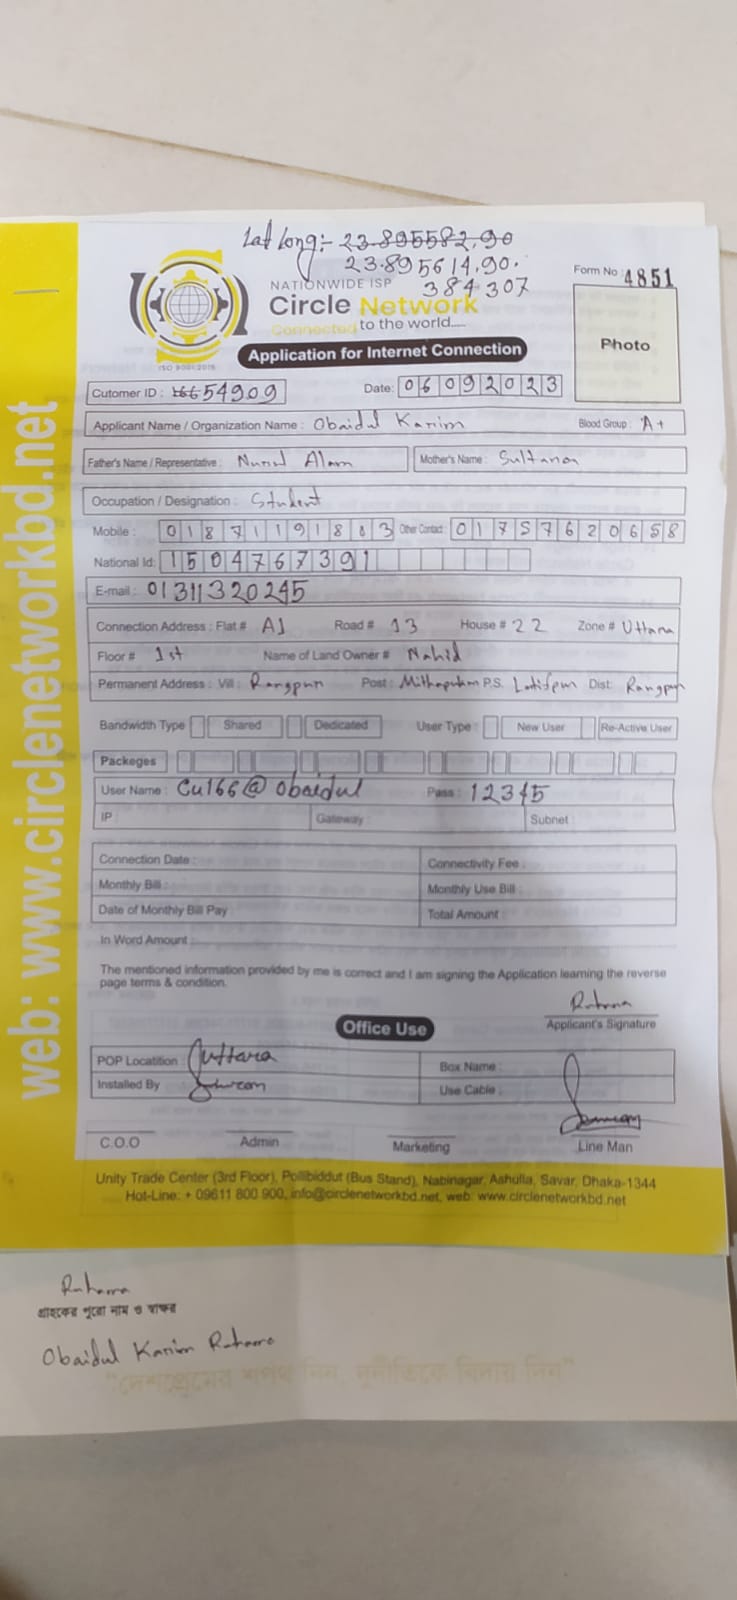 Lat Long:- 23.895582,90
23.895614,90.
384307
NATIONWIDE ISP
Circle Network
Connected to the world.....
ISO 9001:2015
Form No : 4851
Photo
Application for Internet Connection
Cutomer ID : 54909 Date: 06092023
Applicant Name / Organization Name : Obaidul Karim Blood Group : A+
Father's Name / Representative : Nurul Alam Mother's Name : Sultana
Occupation / Designation : Student
Mobile : 01871191803 Other Contact : 01757620658
National Id: 1504767391
E-mail : 01311320245
Connection Address : Flat # A1 Road # 13 House # 22 Zone # Uttara
Floor # 1st Name of Land Owner # Nahid
Permanent Address : Vill : Rangpur Post : Mithapukur P.S. Latifpur Dist: Rangpur
Bandwidth Type Shared Dedicated User Type : New User Re-Active User
Packeges
User Name : Cu166@obaidul Pass : 12345
IP : Gateway : Subnet :
Connection Date : Connectivity Fee :
Monthly Bill : Monthly Use Bill :
Date of Monthly Bill Pay : Total Amount :
In Word Amount :
The mentioned information provided by me is correct and I am signing the Application learning the reverse
page terms & condition.
Applicant's Signature
Office Use
POP Locatition : Uttara Box Name :
Installed By Use Cable :
C.O.O Admin Marketing Line Man
Unity Trade Center (3rd Floor), Pollibiddut (Bus Stand), Nabinagar, Ashulia, Savar, Dhaka-1344
Hot-Line: + 09611 800 900, info@circlenetworkbd.net, web: www.circlenetworkbd.net
web: www.circlenetworkbd.net
গ্রাহকের পুরো নাম ও স্বাক্ষর
Obaidul Karim
"দেশপ্রেমের শপথ নিন, দুর্নীতিকে বিদায় দিন"